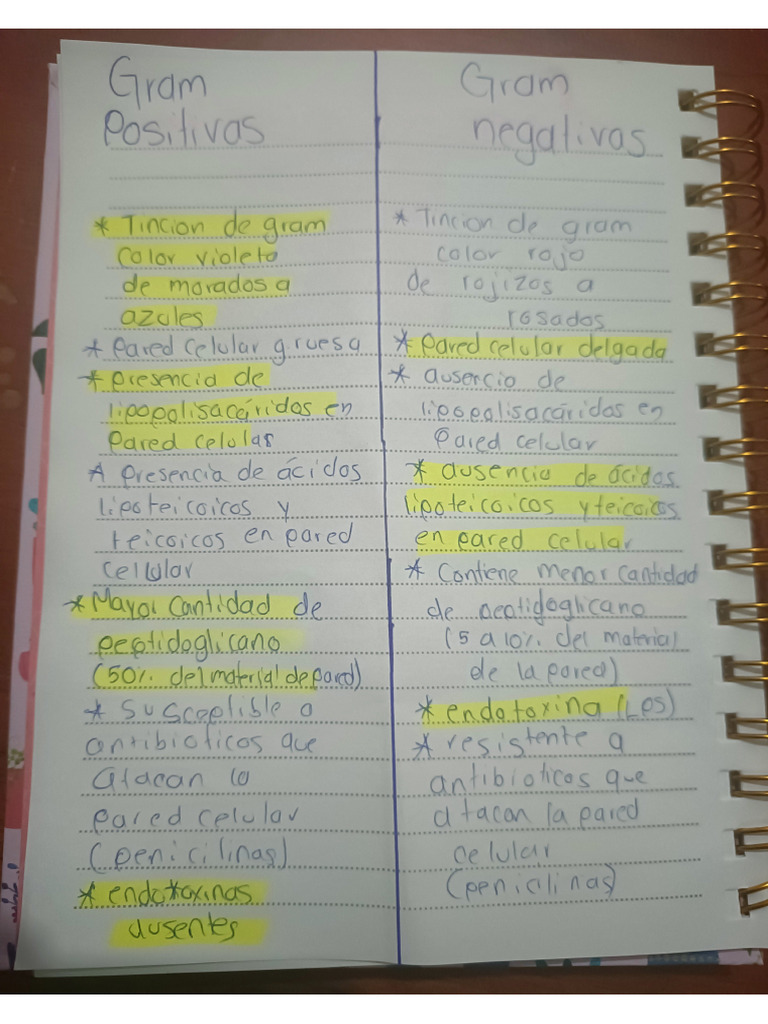 Gram
Positivas
* Tincion de gram
color violeta
de morados a
azules
* Pared celular gruesa
* presencia de
lipopolisacáridos en
Pared celular
* presencia de ácidos
lipoteicoicos y
teicoicos en pared
celular
* Mayor cantidad de
peptidoglicano
(50% del material de pared)
* Susceptible a
antibioticos que
atacan la
pared celular
(penicilinas)
* endotoxinas
ausentes
Gram
negativas
* Tincion de gram
color rojo
de rojizos a
rosados
* pared celular delgada
* ausencia de
lipopolisacáridos en
Pared celular
* ausencia de ácidos
lipoteicoicos y teicoicos
en pared celular
* Contiene menor cantidad
de peptidoglicano
(5 a 10% del material
de la pared)
* endotoxina (LPS)
* resistente a
antibioticos que
atacan la pared
celular
(penicilinas)